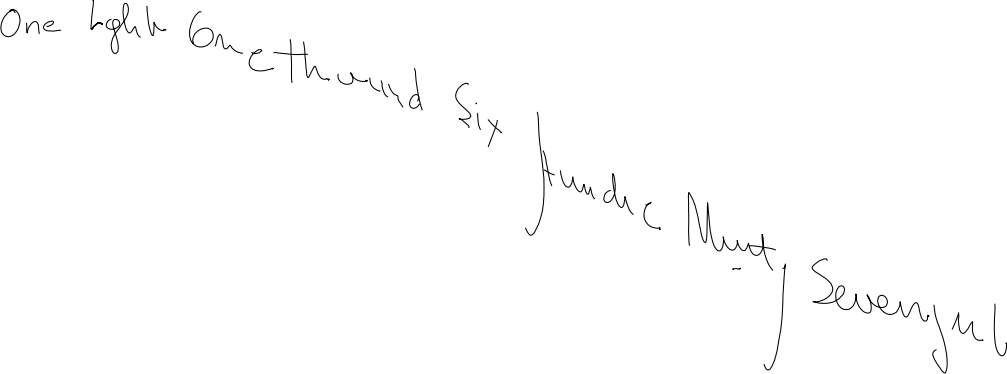 One Lakh One thousand Six Hundre Ninty Seven only